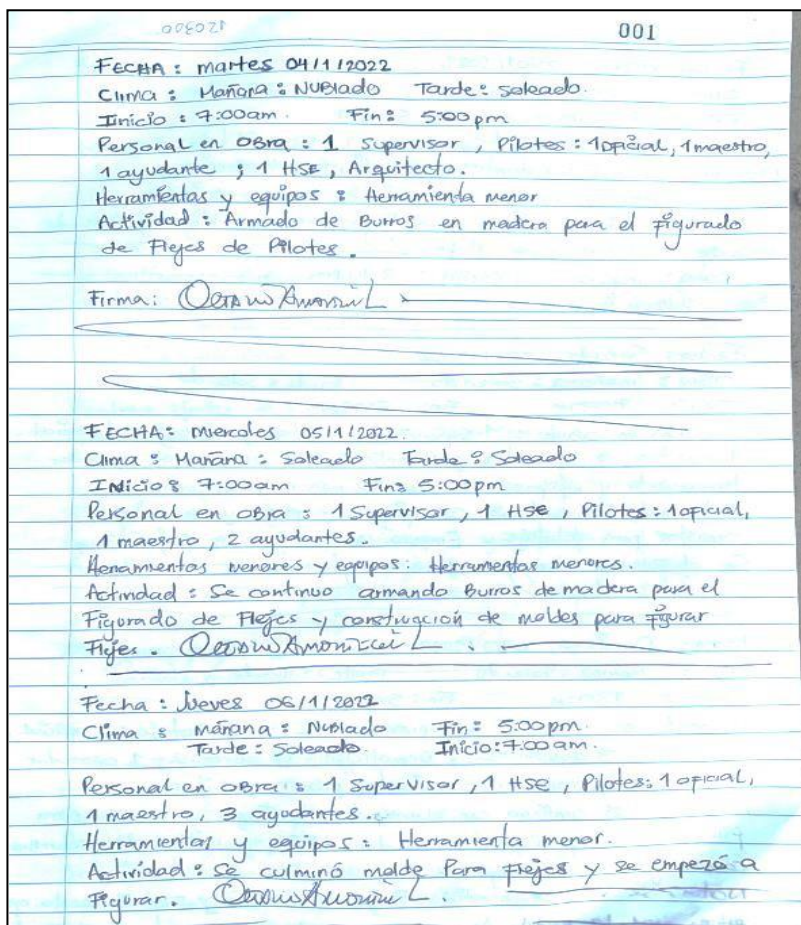 120300
001
FECHA: martes 04/1/2022
Clima: Mañana: Nublado Tarde: Soleado.
Inicio: 7:00am. Fin: 5:00pm
Personal en OBra: 1 Supervisor, Pilotes: 1oficial, 1maestro,
1 ayudante; 1 HSE, Arquitecto.
Herramientas y equipos: Herramienta menor
Actividad: Armado de Burros en madera para el Figurado
de Flejes de Pilotes.
Firma:
FECHA: miercoles 05/1/2022.
Clima: Mañana: Soleado Tarde: Soleado
Inicio: 7:00am Fin: 5:00pm
Personal en OBra: 1 Supervisor, 1 HSE, Pilotes: 1oficial,
1 maestro, 2 ayudantes.
Herramientas menores y equipos: Herramientas menores.
Actividad: Se continuo armando Burros de madera para el
Figurado de Flejes y construcción de moldes para Figurar
Flejes.
Fecha: Jueves 06/1/2022
Clima: Mañana: Nublado Fin: 5:00pm.
Tarde: Soleado. Inicio: 7:00am.
Personal en OBra: 1 Supervisor, 1 HSE, Pilotes: 1 oficial,
1 maestro, 3 ayudantes.
Herramientas y equipos: Herramienta menor.
Actividad: Se culminó molde Para Flejes y se empezó a
Figurar.